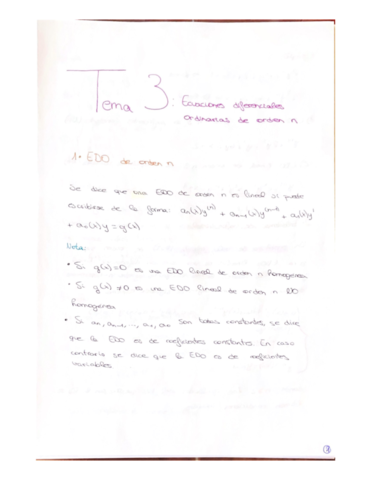 Tema 3: Ecuaciones diferenciales
ordinarias de orden n
1. EDO de orden n
Se dice que una EDO de orden n es lineal si puede
escribirse de la forma: aₙ(x)y⁽ⁿ⁾ + aₙ₋₁(x)y⁽ⁿ⁻¹⁾ + a₁(x)y'
+ a₀(x)y = g(x)
Nota:
• Si g(x)=0 es una EDO lineal de orden n homogénea
• Si g(x)≠0 es una EDO lineal de orden n NO
homogénea
• Si aₙ, aₙ₋₁, ..., a₁, a₀ son todas constantes, se dice
que la EDO es de coeficientes constantes. En caso
contrario se dice que la EDO es de coeficientes
variables